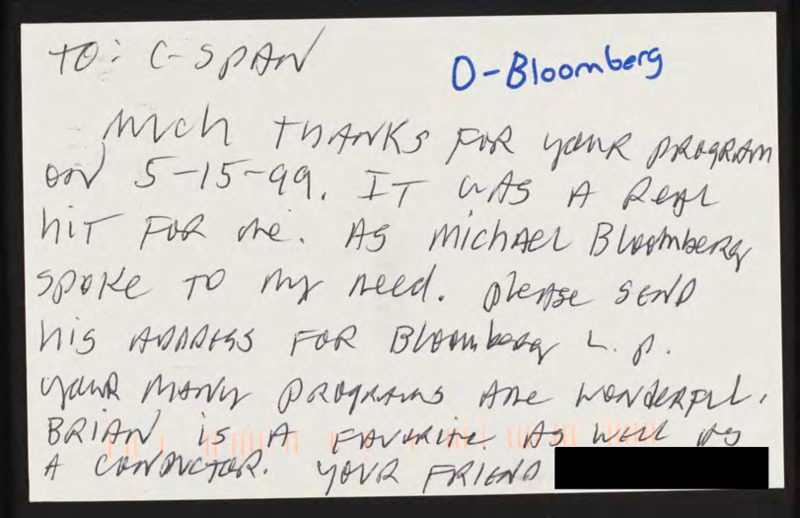 TO: C-SPAN
O-Bloomberg
MUCH THANKS FOR YOUR PROGRAM
ON 5-15-99. IT WAS A REAL
HIT FOR ME. AS MICHAEL BLOOMBERG
SPOKE TO MY NEED. PLEASE SEND
HIS ADDRESS FOR BLOOMBERG L.P.
YOUR MANY PROGRAMS ARE WONDERFUL.
BRIAN IS A FAVORITE AS WELL AS
A CONDUCTOR. YOUR FRIEND